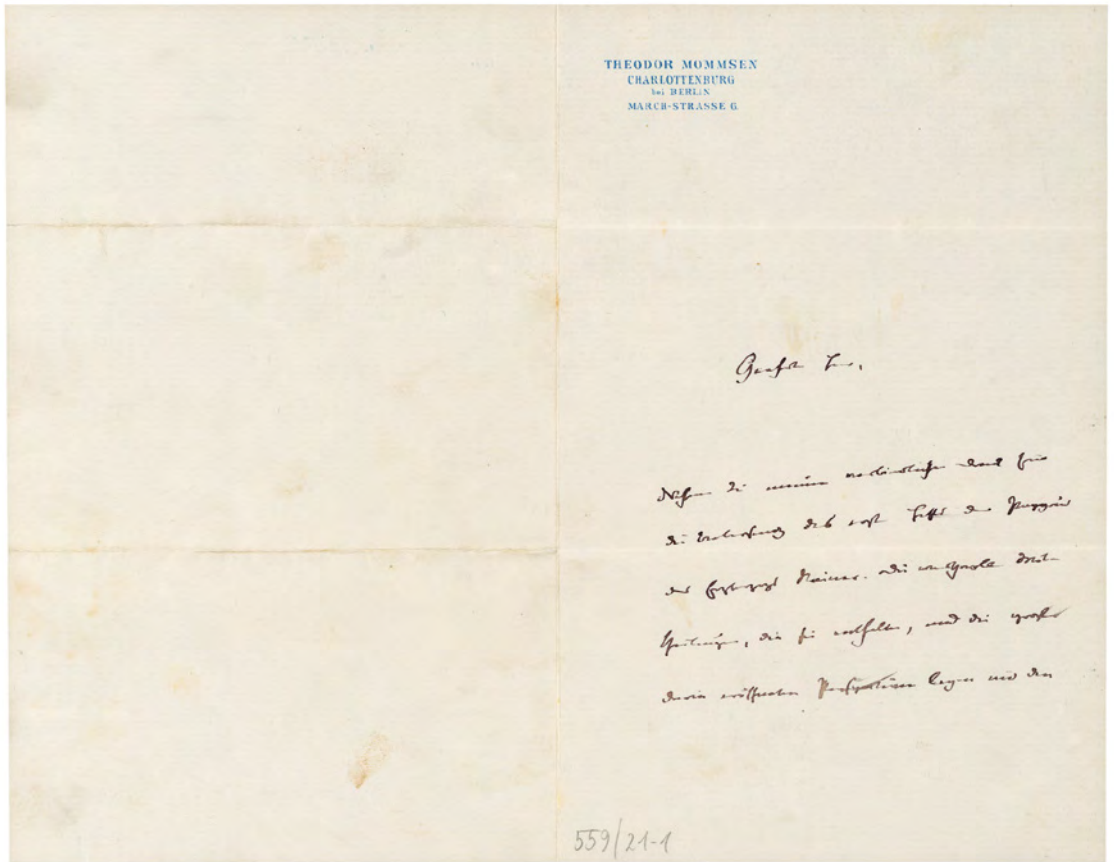 THEODOR MOMMSEN
CHARLOTTENBURG
bei BERLIN
MARCH-STRASSE 6.
Geehrter Herr,
Nehmen Sie meinen verbindlichen Dank für
die des erst Hefts der
des Erzherzogs Rainer. Die Mit-
theilungen, die sie enthalten, und die großen
darin eröffneten Perspectiven legen mir den
559/21-1